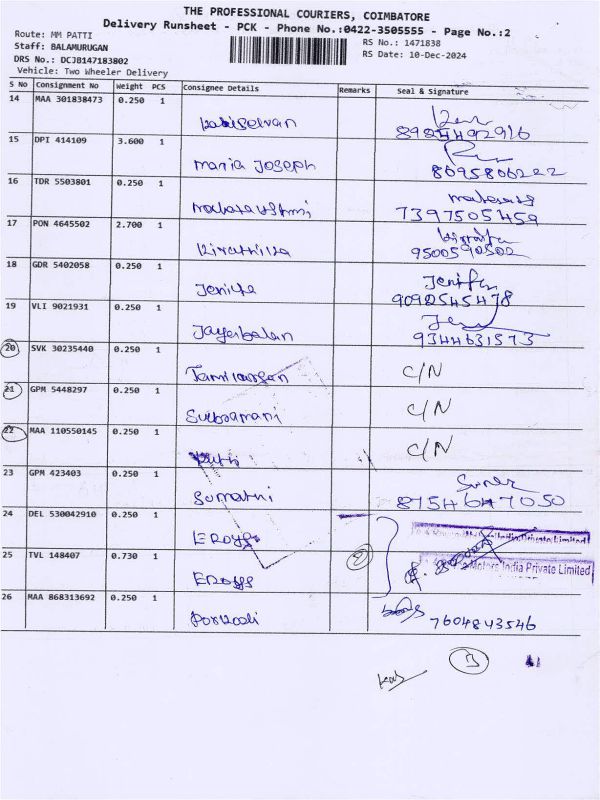 THE PROFESSIONAL COURIERS, COIMBATORE
Delivery Runsheet - PCK - Phone No.:0422-3505555 - Page No.:2
Route: MM PATTI
RS No.: 1471838
Staff: BALAMURUGAN
RS Date: 10-Dec-2024
DRS No.: DCJB147183802
Vehicle: Two Wheeler Delivery
S No Consignment No Weight PCS Consignee Details Remarks Seal & Signature
14 MAA 301838473 0.250 1
Kabiselvan 8925492916
15 DPI 414109 3.600 1
Maria Joseph 8695806222
16 TDR 5503801 0.250 1
7397505459
17 PON 4645502 2.700 1
9500590502
18 GDR 5402058 0.250 1
Jenifer
9092545478
19 VLI 9021931 0.250 1
Jayabalan 9344631573
20 SVK 30235440 0.250 1
C/N
21 GPM 5448297 0.250 1
Subramani C/N
22 MAA 110550145 0.250 1
C/N
23 GPM 423403 0.250 1
Sumathi 8754647050
24 DEL 530042910 0.250 1
India Private Limited
25 TVL 148407 0.730 1
2
Motors India Private Limited
26 MAA 868313692 0.250 1
Porkodi 7604843546